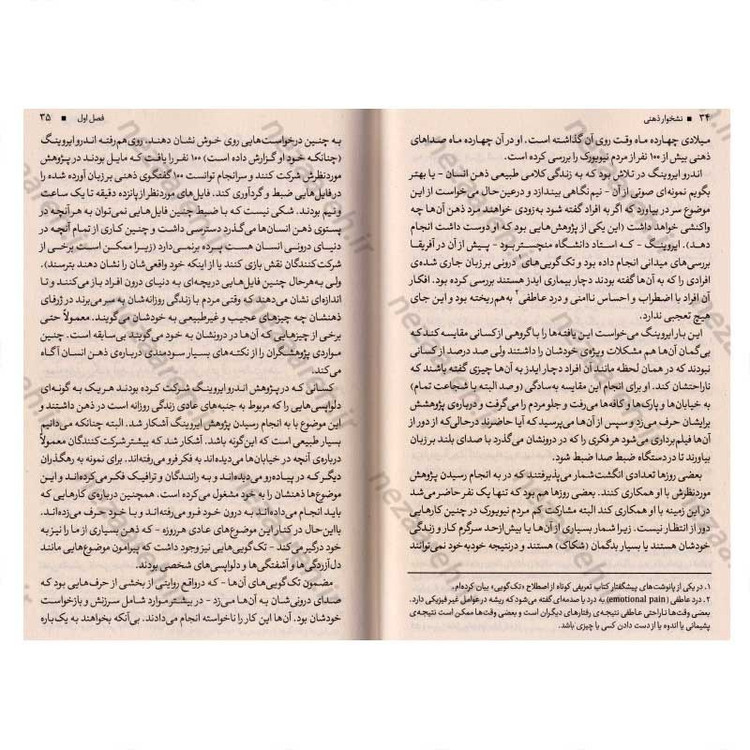 ۳۴ ■ نشخوار ذهنی
میلادی چهارده ماه وقت روی آن گذاشته است. او در آن چهارده ماه صداهای
ذهنی بیش از ۱۰۰ نفر از مردم نیویورک را بررسی کرده است.
اندرو ایروینگ در تلاش بود که به زندگی کلامی طبیعی ذهن انسان - یا بهتر
بگویم نمونه‌ای صوتی از آن - نیم نگاهی بیندازد و درعین‌حال می‌خواست از این
موضوع سر در بیاورد که اگر به افراد گفته شود به‌زودی خواهند مرد ذهن آن‌ها چه
واکنشی خواهد داشت (این یکی از پژوهش‌هایی بود که او دوست داشت انجام
دهد). ایروینگ - که استاد دانشگاه منچستر بود - پیش از آن در آفریقا
بررسی‌های میدانی انجام داده بود و تک‌گویی‌های ۱ درونی بر زبان جاری شده‌ی
افرادی را که به آن‌ها گفته بودند دچار بیماری ایدز هستند بررسی کرده بود. افکار
آن افراد با اضطراب و احساس ناامنی و درد عاطفی۲ به‌هم ریخته بود و این جای
هیچ تعجبی ندارد.
این بار ایروینگ می‌خواست این یافته‌ها را با گروهی از کسانی مقایسه کند که
بی‌گمان آن‌ها هم مشکلات ویژه‌ی خودشان را داشتند ولی صد درصد از کسانی
نبودند که در همان لحظه مانند آن افراد دچار ایدز به آن‌ها چیزی گفته باشند که
ناراحتشان کند. او برای انجام این مقایسه به‌سادگی (وصد البته با شجاعت تمام)
به خیابان‌ها و پارک‌ها و کافه‌ها می‌رفت و جلو مردم را می‌گرفت و درباره‌ی پژوهشش
برایشان حرف می‌زد و سپس از آن‌ها می‌پرسید که آیا حاضرند درحالی‌که از دور از
آن‌ها فیلم‌برداری می‌شود هر فکری را که در درونشان می‌گذرد با صدای بلند بر زبان
بیاورند تا در دستگاه ضبط صدا ضبط شود.
بعضی روزها تعدادی انگشت‌شمار می‌پذیرفتند که در به انجام رسیدن پژوهش
موردنظرش با او همکاری کنند. بعضی روزها هم بود که تنها یک نفر حاضر می‌شد
در این زمینه با او همکاری کند البته مشارکت کم مردم نیویورک در چنین کارهایی
دور از انتظار نیست. زیرا شمار بسیاری از آن‌ها یا بیش‌ازحد سرگرم کار و زندگی
خودشان هستند یا بسیار بدگمان (شکاک) هستند و درنتیجه خودبه‌خود نمی‌توانند
۱. در یکی از پانوشت‌های پیشگفتار کتاب تعریفی کوتاه از اصطلاح «تک‌گویی» بیان کرده‌ام.
۲. درد عاطفی (emotional pain) به درد یا صدمه‌ای گفته می‌شود که ریشه در عوامل غیر فیزیکی دارد.
بعضی وقت‌ها ناراحتی عاطفی نتیجه‌ی رفتارهای دیگران است و بعضی وقت‌ها ممکن است نتیجه‌ی
پشیمانی یا اندوه یا از دست دادن کسی یا چیزی باشد.
فصل اول ■ ۳۵
به چنین درخواست‌هایی روی خوش نشان دهند. روی‌هم‌رفته اندرو ایروینگ
(چنانکه خود او گزارش داده است) ۱۰۰ نفر را یافت که مایل بودند در پژوهش
موردنظرش شرکت کنند و سرانجام توانست ۱۰۰ گفتگوی ذهنی بر زبان آورده شده را
در فایل‌هایی ضبط و گردآوری کند. فایل‌های موردنظر از پانزده دقیقه تا یک ساعت
و نیم بودند. شکی نیست که با ضبط چنین فایل‌هایی نمی‌توان به هرآنچه در
پستوی ذهن انسان‌ها می‌گذرد دسترسی داشت و چنین کاری از تمام آنچه در
دنیای درونی انسان هست پرده برنمی‌دارد (زیرا ممکن است برخی از
شرکت‌کنندگان نقش بازی کنند یا از اینکه خود واقعی‌شان را نشان دهند بترسند).
ولی به‌هرحال چنین فایل‌هایی دریچه‌ای به دنیای درون افراد باز می‌کنند و تا
اندازه‌ای نشان می‌دهند که وقتی مردم با زندگی روزانه‌شان به سر می‌برند در ژرفای
ذهنشان چه چیزهای عجیب و غیرطبیعی به خودشان می‌گویند. معمولاً حتی
برخی از چیزهایی که آن‌ها در درونشان به خود می‌گویند بی‌سابقه است. چنین
مواردی پژوهشگران را از نکته‌های بسیار سودمندی درباره‌ی ذهن انسان آگاه
می‌کند.
کسانی که در پژوهش اندرو ایروینگ شرکت کرده بودند هر یک به گونه‌ای
دلواپسی‌هایی را که مربوط به جنبه‌های عادی زندگی روزانه است در ذهن داشتند و
این موضوع با به انجام رسیدن پژوهش ایروینگ آشکار شد. البته چنانکه می‌دانیم
بسیار طبیعی است که این‌گونه باشد. آشکار شد که بیشتر شرکت‌کنندگان معمولاً
درباره‌ی آنچه در خیابان‌ها می‌دیده‌اند به فکر فرو می‌رفته‌اند. برای نمونه به رهگذران
دیگر که در پیاده‌رو می‌دیده‌اند و به رانندگان و ترافیک فکر می‌کرده‌اند و این
موضوع‌ها ذهنشان را به خود مشغول می‌کرده است. همچنین درباره‌ی کارهایی که
باید انجام می‌داده‌اند به درون خود فرو می‌رفته‌اند و با خود حرف می‌زده‌اند.
بااین‌حال در کنار این موضوع‌های عادی هرروزه - که ذهن بسیاری از ما را نیز به
خود درگیر می‌کند - تک‌گویی‌هایی نیز وجود داشت که پیرامون موضوع‌هایی مانند
دل‌آزردگی‌ها و آشفتگی‌ها و دلواپسی‌های شخصی بودند.
مضمون تک‌گویی‌های آن‌ها - که درواقع روایتی از بخشی از حرف‌هایی بود که
صدای درونی‌شان به آن‌ها می‌زد - در بیشتر موارد شامل سرزنش و بازخواست
خودشان بود. آن‌ها این کار را ناخواسته انجام می‌دادند. بی‌آنکه بخواهند به یک‌باره